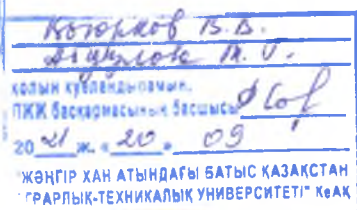 В.В.
қолын куәландырамын.
ПЖК басқармасының басшысы
20 21 ж. « 20 » 09
ЖӘҢГІР ХАН АТЫНДАҒЫ БАТЫС ҚАЗАҚСТАН
ГРАРЛЫҚ-ТЕХНИКАЛЫҚ УНИВЕРСИТЕТІ" КеАҚ